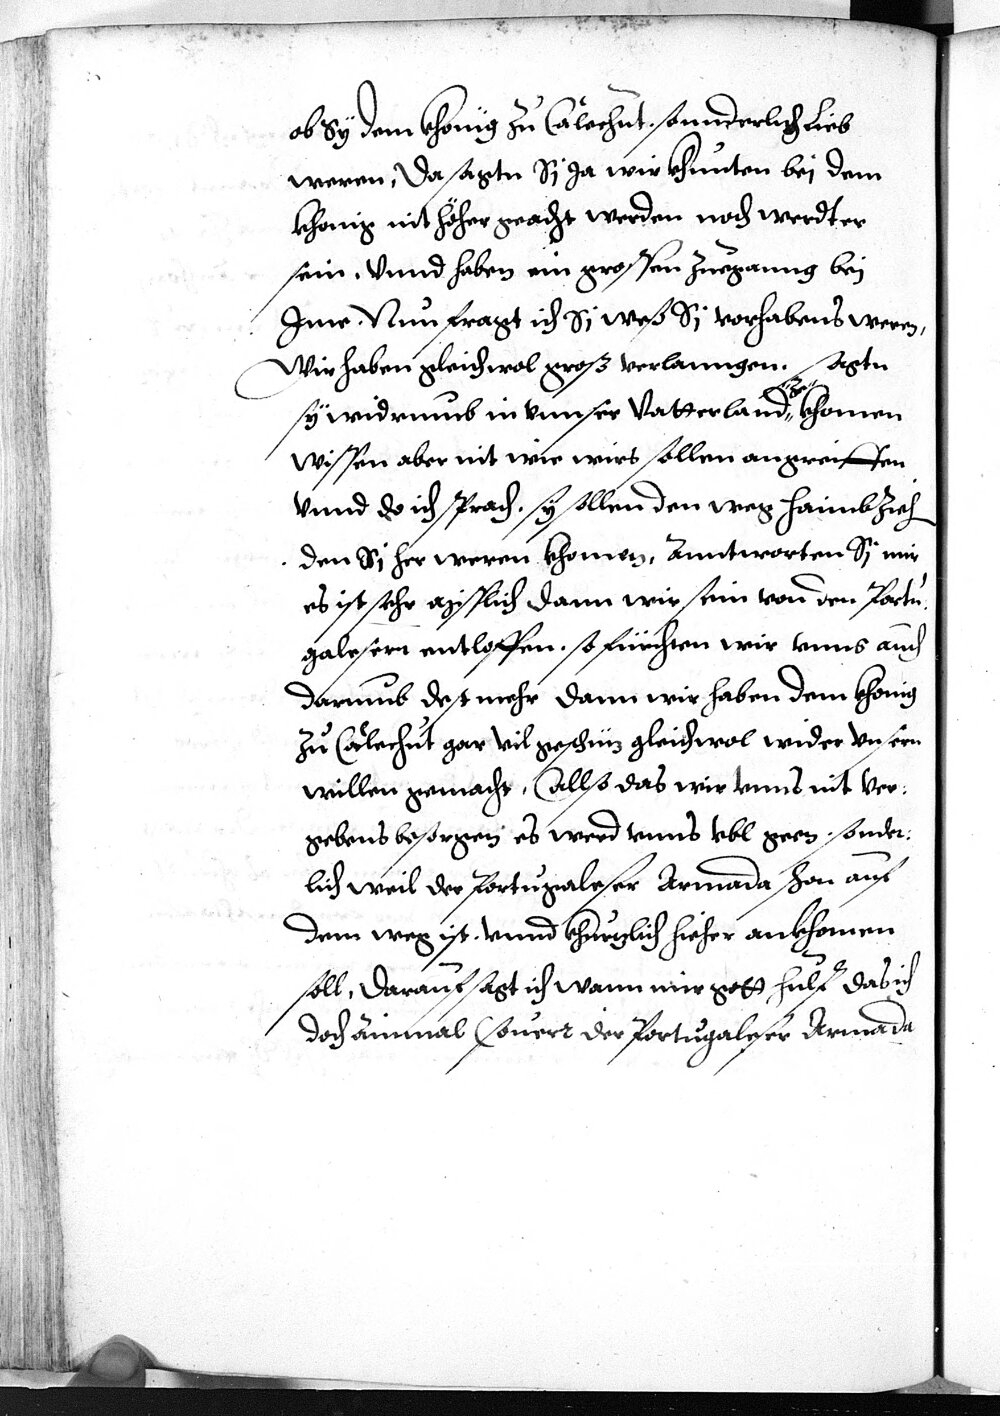 ob Sÿ dem khönig zu Calechut. sonnderlich Lieb
weren, Da sagtn Si Ja wir khunten bei dem
khonig nit höher geacht werden noch werdter
sein. Vnnd haben ein grossen zueganng bei
Ime. Nun fragt ich Si weß Si vorhabens weren,
Wir haben gleichwol groß verlanngen. sagtn
sÿ widrumb in vnnser Vatterland zu khomen
wissen aber nit wie wirs sollen angreiffen
Vnnd do ich sprach. sÿ sollen den weg haimbzieh
den Si her weren khomen, Anntworten Si mir
es ist sehr mißlich dann wir sein von den Portu¬
galesern entloffen. so fürchten wir vnns auch
darumb dest mehr dann wir haben dem khonig
zu Calechut gar vil geschüz gleichwol wider vnsern
willen gemacht, Allso das wir vnns nit ver¬
gebens besorgen es werd vnns vbl geen. sonder¬
lich weil der Portugaleser Armada schon auf
dem weg ist. vnnd khurzlich hieher ankhomen
soll, Darauf sagt ich wann mir gott hulf das ich
doch ainmal souerr der Portugaleser Armada